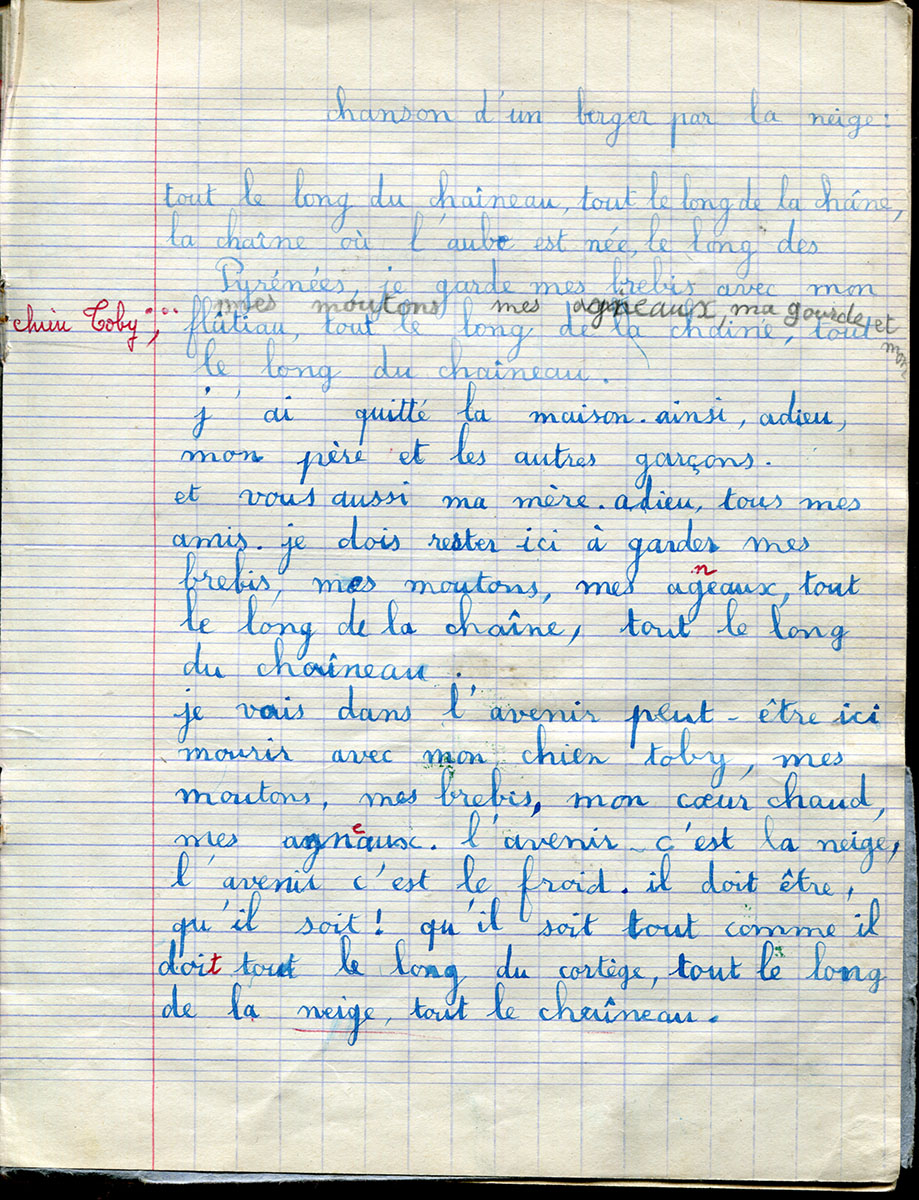 chanson d'un berger par la neige :
tout le long du chaîneau, tout le long de la châne,
la chaîne où l'aube est née, le long des
Pyrénées, je garde mes brebis avec mon
mes moutons mes agneaux, ma gourde et mon
chien Toby,
flûtiau, tout le long de la chaîne, tout
le long du chaineau.
j'ai quitté la maison. ainsi, adieu,
mon père et les autres garçons.
et vous aussi ma mère. adieu, tous mes
amis. je dois rester ici à garder mes
brebis, mes moutons, mes agneaux, tout
le long de la chaîne, tout le long
du chaîneau.
je vais dans l'avenir peut-être ici
mourir avec mon chien toby, mes
moutons, mes brebis, mon cœur chaud,
mes agneaux. l'avenir c'est la neige,
l'avenir c'est le froid. il doit être,
qu'il soit ! qu'il soit tout comme il
doit tout le long du cortège, tout le long
de la neige, tout le chaîneau.